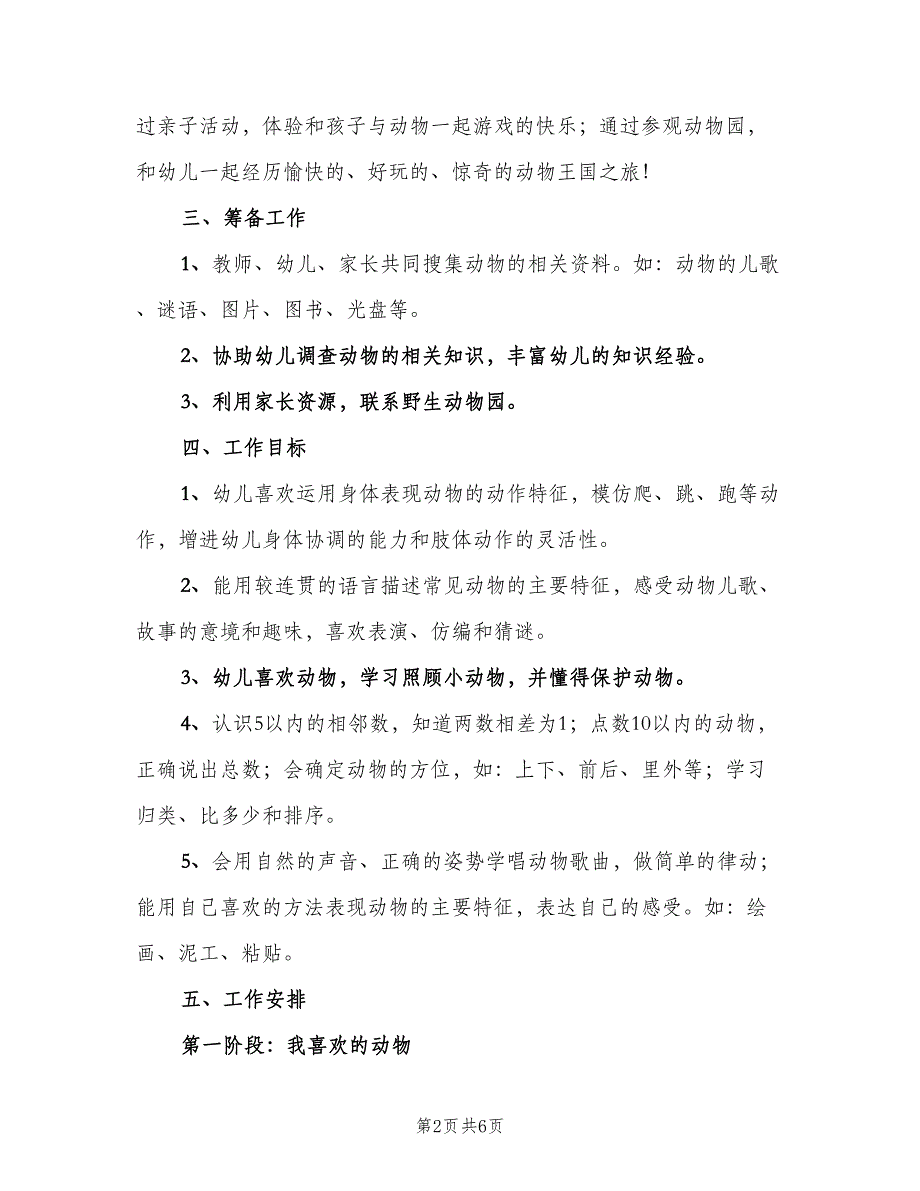 过亲子活动，体验和孩子与动物一起游戏的快乐；通过参观动物园，
和幼儿一起经历愉快的、好玩的、惊奇的动物王国之旅！
三、筹备工作
1、教师、幼儿、家长共同搜集动物的相关资料。如：动物的儿歌
、谜语、图片、图书、光盘等。
2、协助幼儿调查动物的相关知识，丰富幼儿的知识经验。
3、利用家长资源，联系野生动物园。
四、工作目标
1、幼儿喜欢运用身体表现动物的动作特征，模仿爬、跳、跑等动
作，增进幼儿身体协调的能力和肢体动作的灵活性。
2、能用较连贯的语言描述常见动物的主要特征，感受动物儿歌、
故事的意境和趣味，喜欢表演、仿编和猜谜。
3、幼儿喜欢动物，学习照顾小动物，并懂得保护动物。
4、认识5以内的相邻数，知道两数相差为1；点数10以内的动物，
正确说出总数；会确定动物的方位，如：上下、前后、里外等；学习
归类、比多少和排序。
5、会用自然的声音、正确的姿势学唱动物歌曲，做简单的律动；
能用自己喜欢的方法表现动物的主要特征，表达自己的感受。如：绘
画、泥工、粘贴。
五、工作安排
第一阶段：我喜欢的动物
第2页 共6页